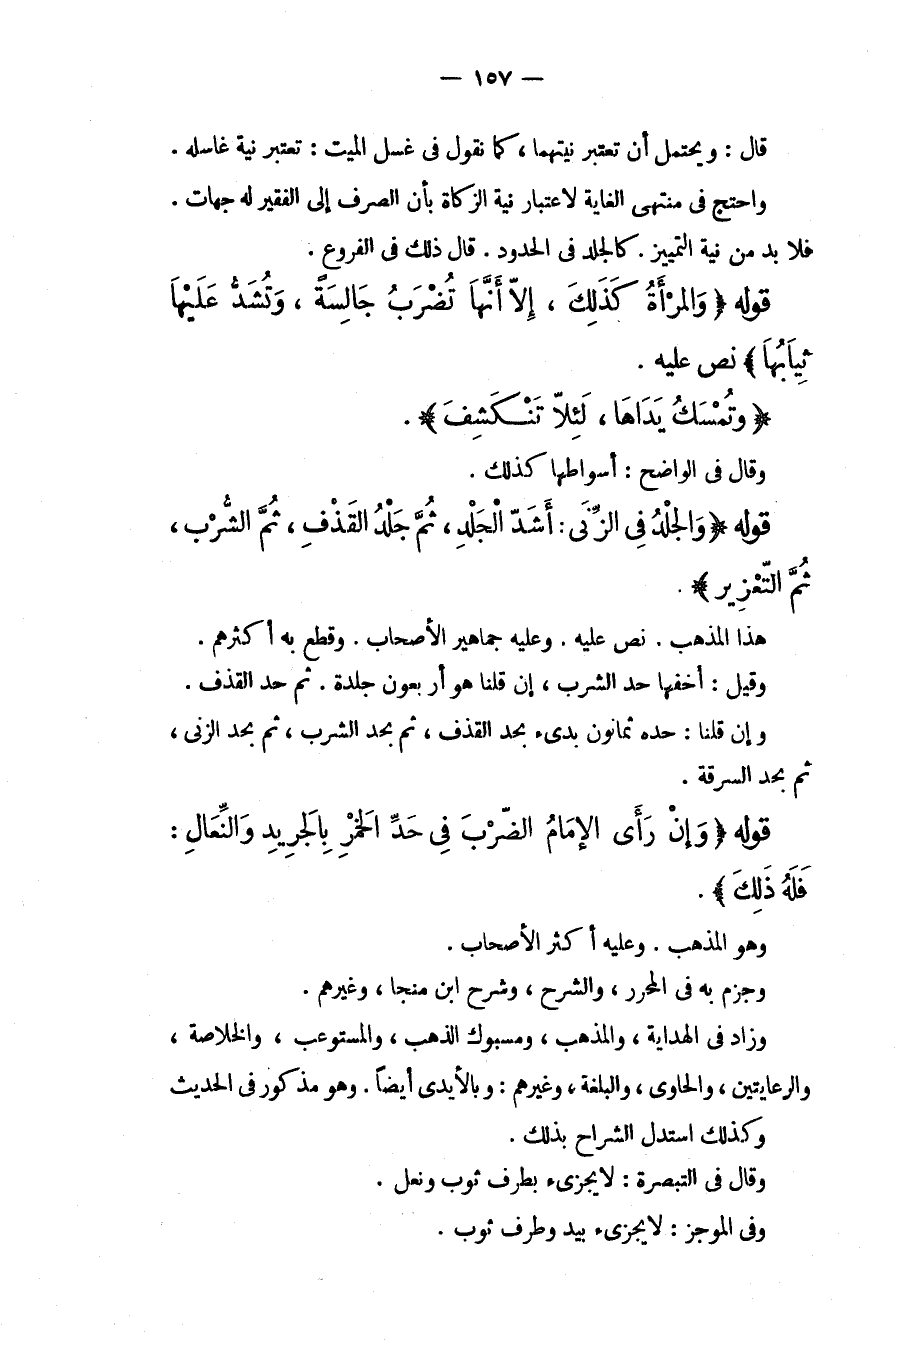 — ١٥٧ —
قال : ويحتمل أن تعتبر نيتهما ، كما نقول فى غسل الميت : تعتبر نية غاسله .
واحتج فى منتهى الغاية لاعتبار نية الزكاة بأن الصرف إلى الفقير له جهات .
فلا بد من نية التمييز . كالجلد فى الحدود . قال ذلك فى الفروع .
قوله ﴿ وَالمرْأَةُ كَذَلِكَ ، إِلاّ أَنَّهَا تُضْرَبُ جَالِسَةً ، وَتُشَدُّ عَلَيْهَا
ثِيَابُهَا ﴾ نص عليه .
﴿ وتُمْسَكُ يَدَاهَا ، لَئِلاّ تَنْكَشِفَ ﴾ .
وقال فى الواضح : أسواطها كذلك .
قوله ﴿ وَالجْلْدُ فِى الزِّنَى : أَشَدّ الْجَلْدِ ، ثُمَّ جَلْدُ القَذْفِ ، ثُمَّ الشُّرْب ،
ثُمَّ التّعْزِير ﴾ .
هذا المذهب . نص عليه . وعليه جماهير الأصحاب . وقطع به أكثرهم .
وقيل : أخفها حد الشرب ، إن قلنا هو أربعون جلدة . ثم حد القذف .
وإن قلنا : حده ثمانون بدىء بحد القذف ، ثم بحد الشرب ، ثم بحد الزنى ،
ثم بحد السرقة .
قوله ﴿ وَإنْ رَأَى الإِمَامُ الضّرْبَ فِى حَدِّ الَخمْرِ بِالَجرِيدِ وَالنِّعَالِ :
فَلَهُ ذَلِكَ ﴾ .
وهو المذهب . وعليه أكثر الأصحاب .
وجزم به فى المحرر ، والشرح ، وشرح ابن منجا ، وغيرهم .
وزاد فى الهداية ، والمذهب ، ومسبوك الذهب ، والمستوعب ، والخلاصة ،
والرعايتين ، والحاوى ، والبلغة ، وغيرهم : وبالأيدى أيضاً . وهو مذكور فى الحديث
وكذلك استدل الشراح بذلك .
وقال فى التبصرة : لا يجزىء بطرف ثوب ونعل .
وفى الموجز : لا يجزىء بيد وطرف ثوب .